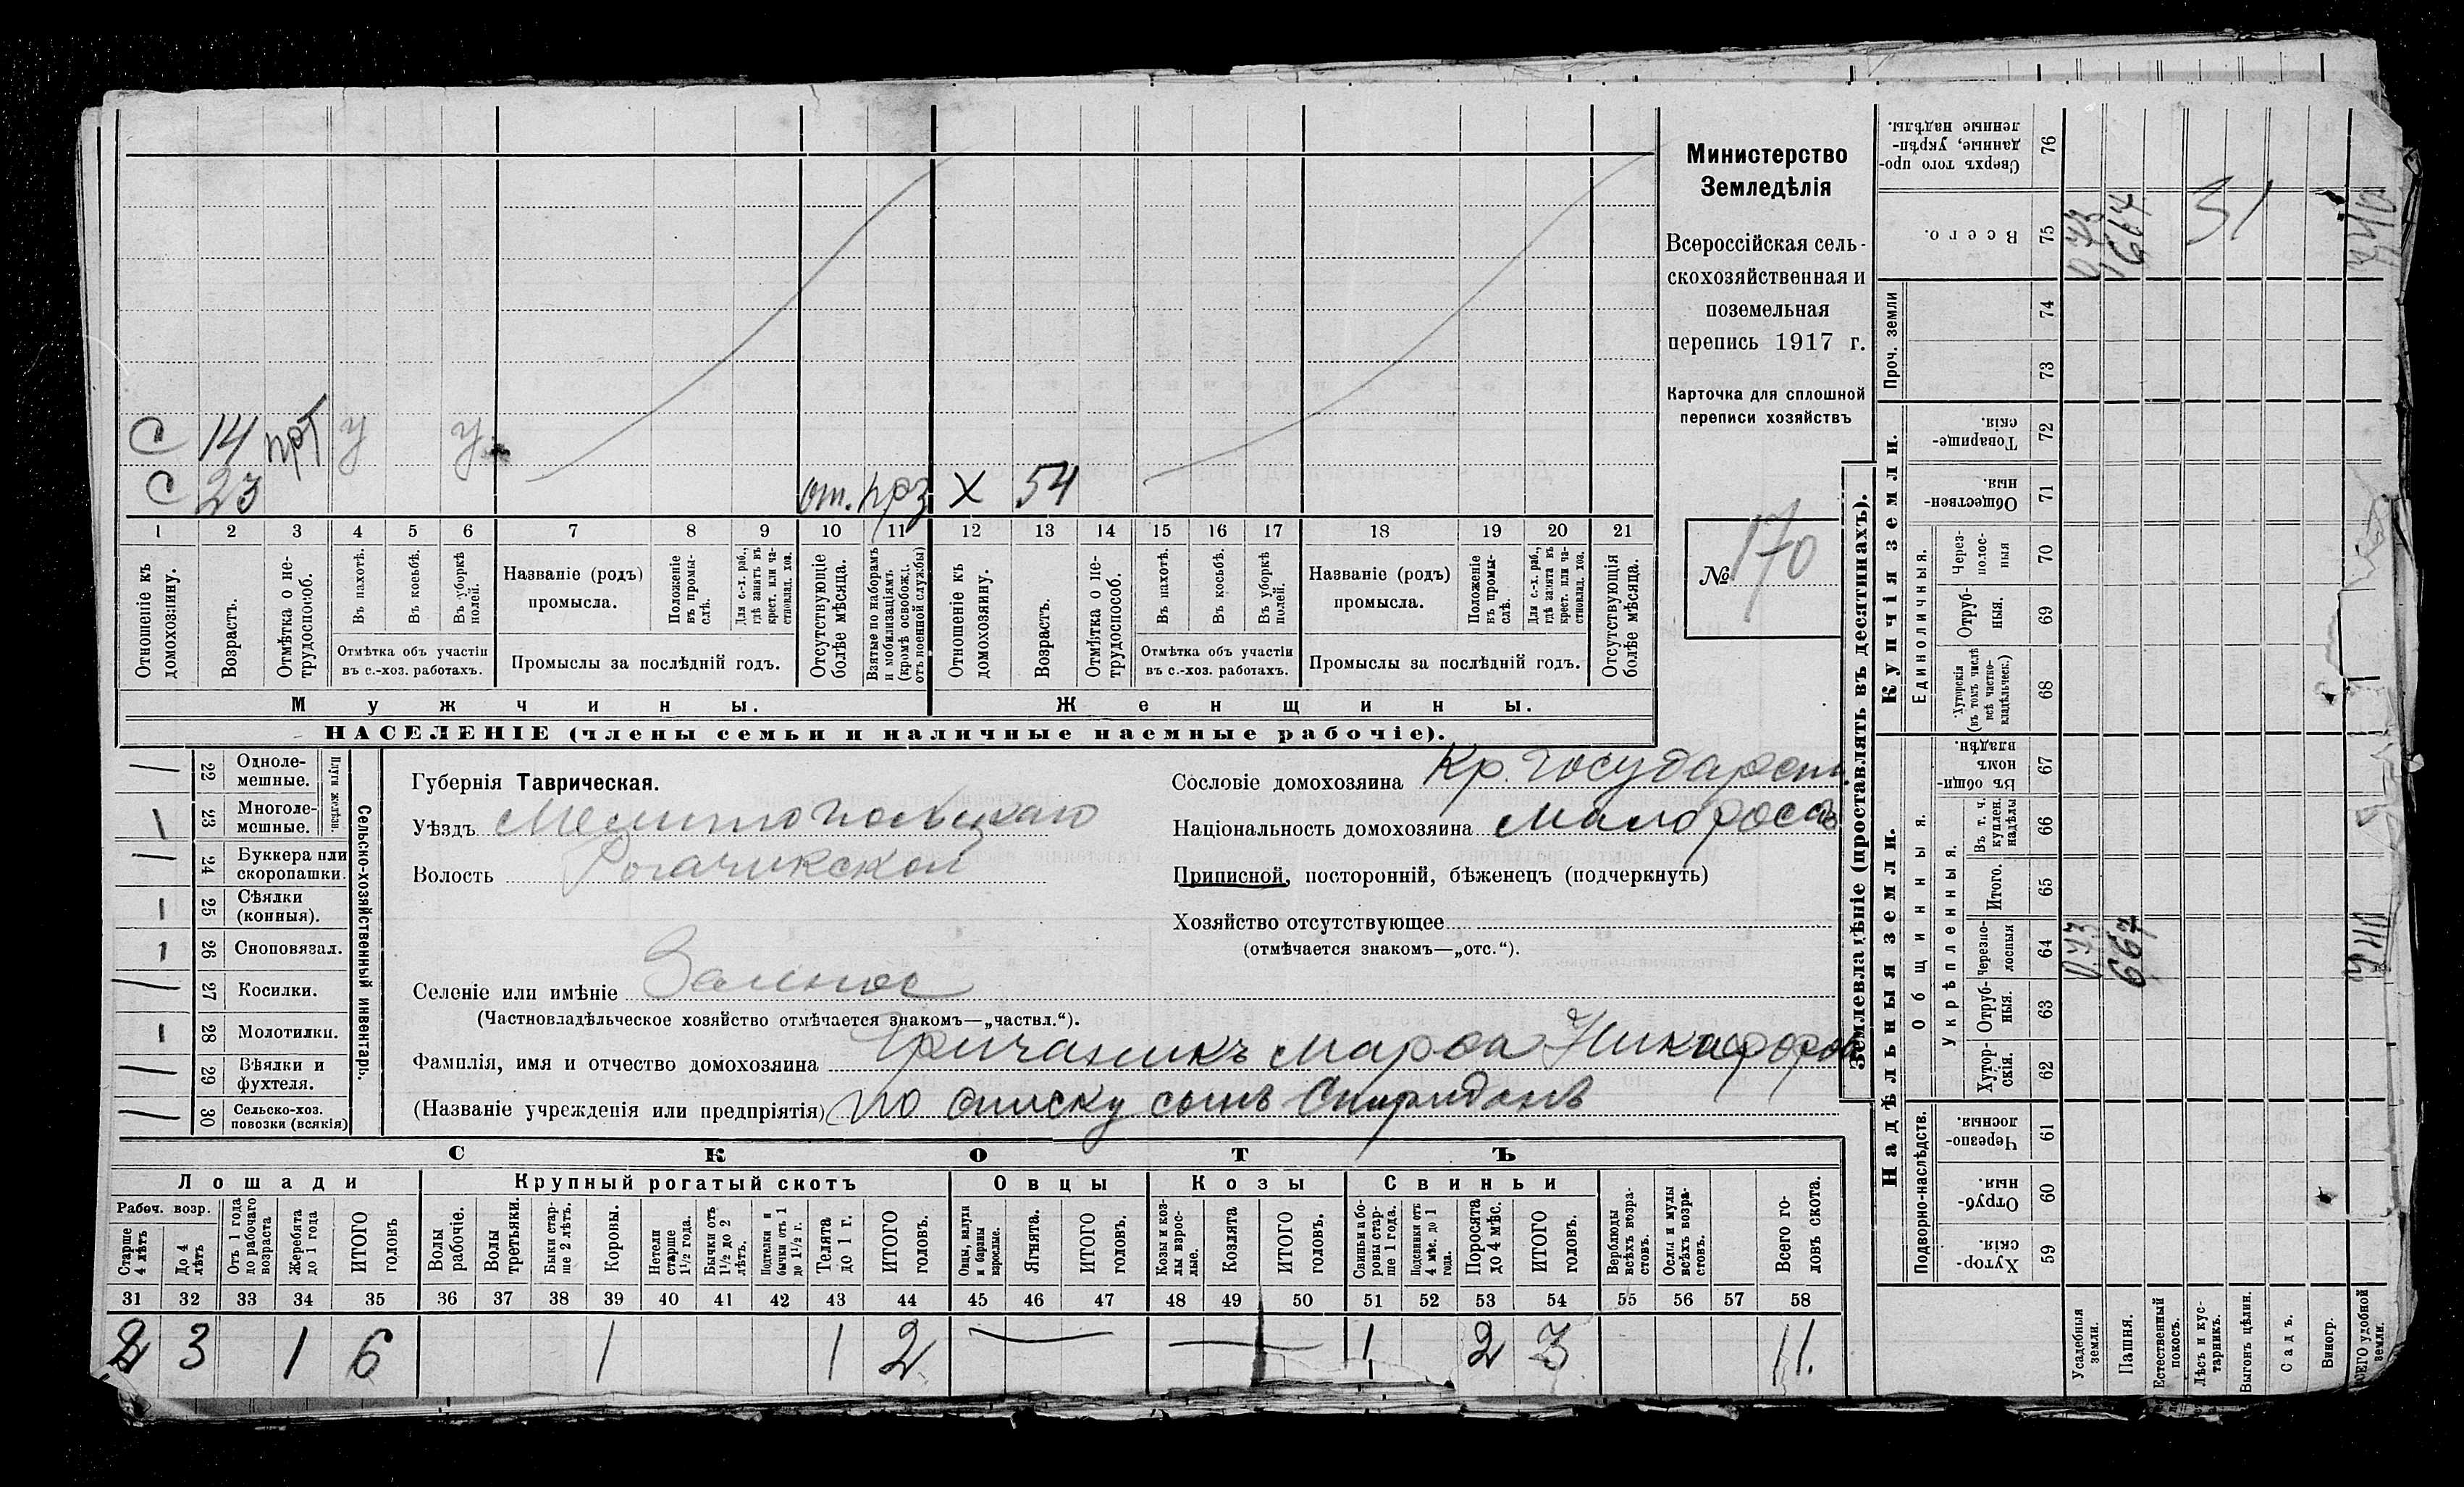 Министерство
Земледѣлія
Всероссійская сель-
скохозяйственная и
поземельная
перепись 1917 г.
Карточка для сплошной
переписи хозяйствъ
№ 170
С 14 прт у у
С 23 от. прз х 54
1 2 3 4 5 6 7 8 9 10 11 12 13 14 15 16 17 18 19 20 21
Отношеніе къ домохозяину.
Возрастъ.
Отмѣтка о не-трудоспособ.
Въ пахотѣ.
Въ косьбѣ.
Въ уборкѣ полей.
Отмѣтка объ участіи
въ с.-хоз. работахъ.
Названіе (родъ)
промысла.
Положеніе въ промы-слѣ.
Для с.-х. раб., гдѣ занятъ въ крест. или ча-стновлад. хоз.
Промыслы за послѣдній годъ.
Отсутствующіе болѣе мѣсяца.
Взятые по наборамъ и мобилизаціямъ (кромѣ освобожд. отъ военной службы)
Отношеніе къ домохозяину.
Возрастъ.
Отмѣтка о не-трудоспособ.
Въ пахотѣ.
Въ косьбѣ.
Въ уборкѣ полей.
Отмѣтка объ участіи
въ с.-хоз. работахъ.
Названіе (родъ)
промысла.
Положеніе въ промы-слѣ.
Для с.-х. раб., гдѣ занята въ крест. или ча-стновлад. хоз.
Промыслы за послѣдній годъ.
Отсутствующія болѣе мѣсяца.
Мужчины. Женщины.
НАСЕЛЕНІЕ (члены семьи и наличные наемные рабочіе).
Сельско-хозяйственный инвентарь.
Плуги желѣзн.
— 22 Одноле-мешные.
1 23 Многоле-мешные.
— 24 Буккера или скоропашки.
1 25 Сѣялки (конныя).
1 26 Сноповязал.
— 27 Косилки.
1 28 Молотилки.
— 29 Вѣялки и фухтеля.
— 30 Сельско-хоз. повозки (всякія)
Губернія Таврическая.
Уѣздъ Мелитопольскаго
Волость Рогачикской
Селеніе или имѣніе
(Частновладѣльческое хозяйство отмѣчается знакомъ—„частвл.“).
Фамилія, имя и отчество домохозяина Гричаникъ Марфа Никифоров
(Названіе учрежденія или предпріятія) (по списку сынъ Спиридонъ
Сословіе домохозяина Кр. государств
Національность домохозяина малороссъ
Приписной, посторонній, бѣженецъ (подчеркнуть)
Хозяйство отсутствующее
(отмѣчается знакомъ—„отс.“).
СКОТЪ
Лошади Крупный рогатый скотъ Овцы Козы Свиньи
Рабоч. возр.
Старше 4 лѣтъ
До 4 лѣтъ
Отъ 1 года до рабочаго возраста
Жеребята до 1 года
ИТОГО головъ
Волы рабочіе.
Волы третьяки.
Быки стар-ше 2 лѣтъ.
Коровы.
Нетели старше 1½ года.
Бычки отъ 1½ до 2 лѣтъ.
Подтелки и бычки отъ 1 до 1½ г.
Телята до 1 г.
ИТОГО головъ.
Овцы, валухи и бараны взрослые.
Ягнята.
ИТОГО головъ.
Козы и коз-лы взрос-лые.
Козлята
ИТОГО головъ.
Свиньи и бо-ровы стар-ше 1 года.
Подсвинки отъ 4 мѣс. до 1 года.
Поросята до 4 мѣс.
ИТОГО головъ.
Верблюды всѣхъ возра-стовъ.
Ослы и мулы всѣхъ возра-стовъ.
Всего го-ловъ скота.
31 32 33 34 35 36 37 38 39 40 41 42 43 44 45 46 47 48 49 50 51 52 53 54 55 56 57 58
2 3 1 6 1 1 2 — — 1 2 3 11.
Землевладѣніе (проставлять въ десятинахъ).
Купчія земли.
Надѣльныя земли.
Проч. земли
Единоличныя.
Общинныя.
Укрѣпленныя.
Подворно-наслѣдств.
Сверхъ того про-данные, укрѣп-ленные надѣлы. 76
Всего. 75 0,73 667 31
74
73
Товарище-скія. 72
Обществен-ныя. 71
Через-полос-ныя 70
Отруб-ныя. 69
Хуторскія (въ томъ числѣ всѣ частно-владѣльческ.) 68
Въ общи-номъ владѣн. 67
Въ т. ч. куплен. надѣлы 66
Итого. 65
Черезпо-лосныя 64 0,73 667
Отруб-ныя. 63
Хутор-скія. 62
Черезпо-лосныя. 61
Отруб-ныя. 60
Хутор-скія. 59
Усадебныя земли.
Пашня.
Естественный покосъ.
Лѣсъ и кус-тарникъ.
Выгонъ цѣлин.
Садъ.
Виногр.
ВСЕГО удобной земли.